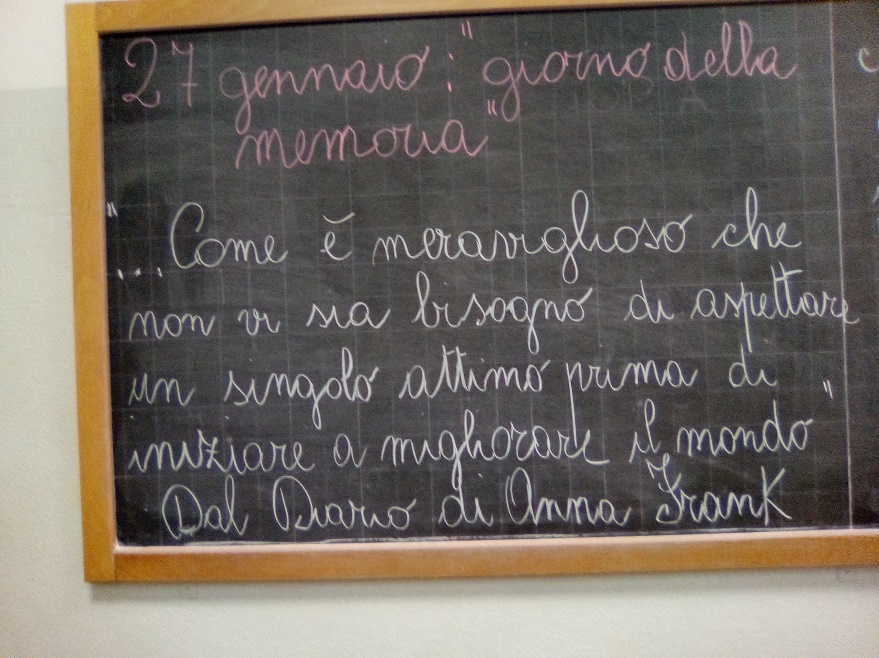 27 gennaio: "giorno della
memoria"
"...Come è meraviglioso che
non vi sia bisogno di aspettare
un singolo attimo prima di
iniziare a migliorare il mondo"
Dal Diario di Anna Frank